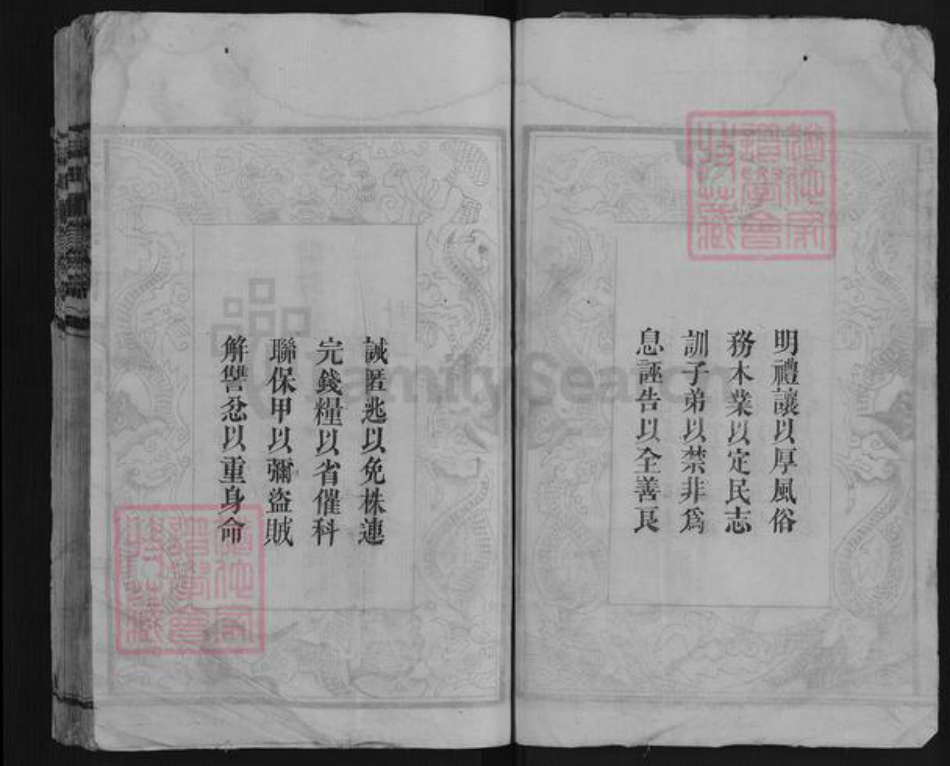 明禮讓以厚風俗
務本業以定民志
訓子弟以禁非爲
息誣告以全善良
誡匿逃以免株連
完錢糧以省催科
聯保甲以彌盜賊
解讐忿以重身命
FamilySearch